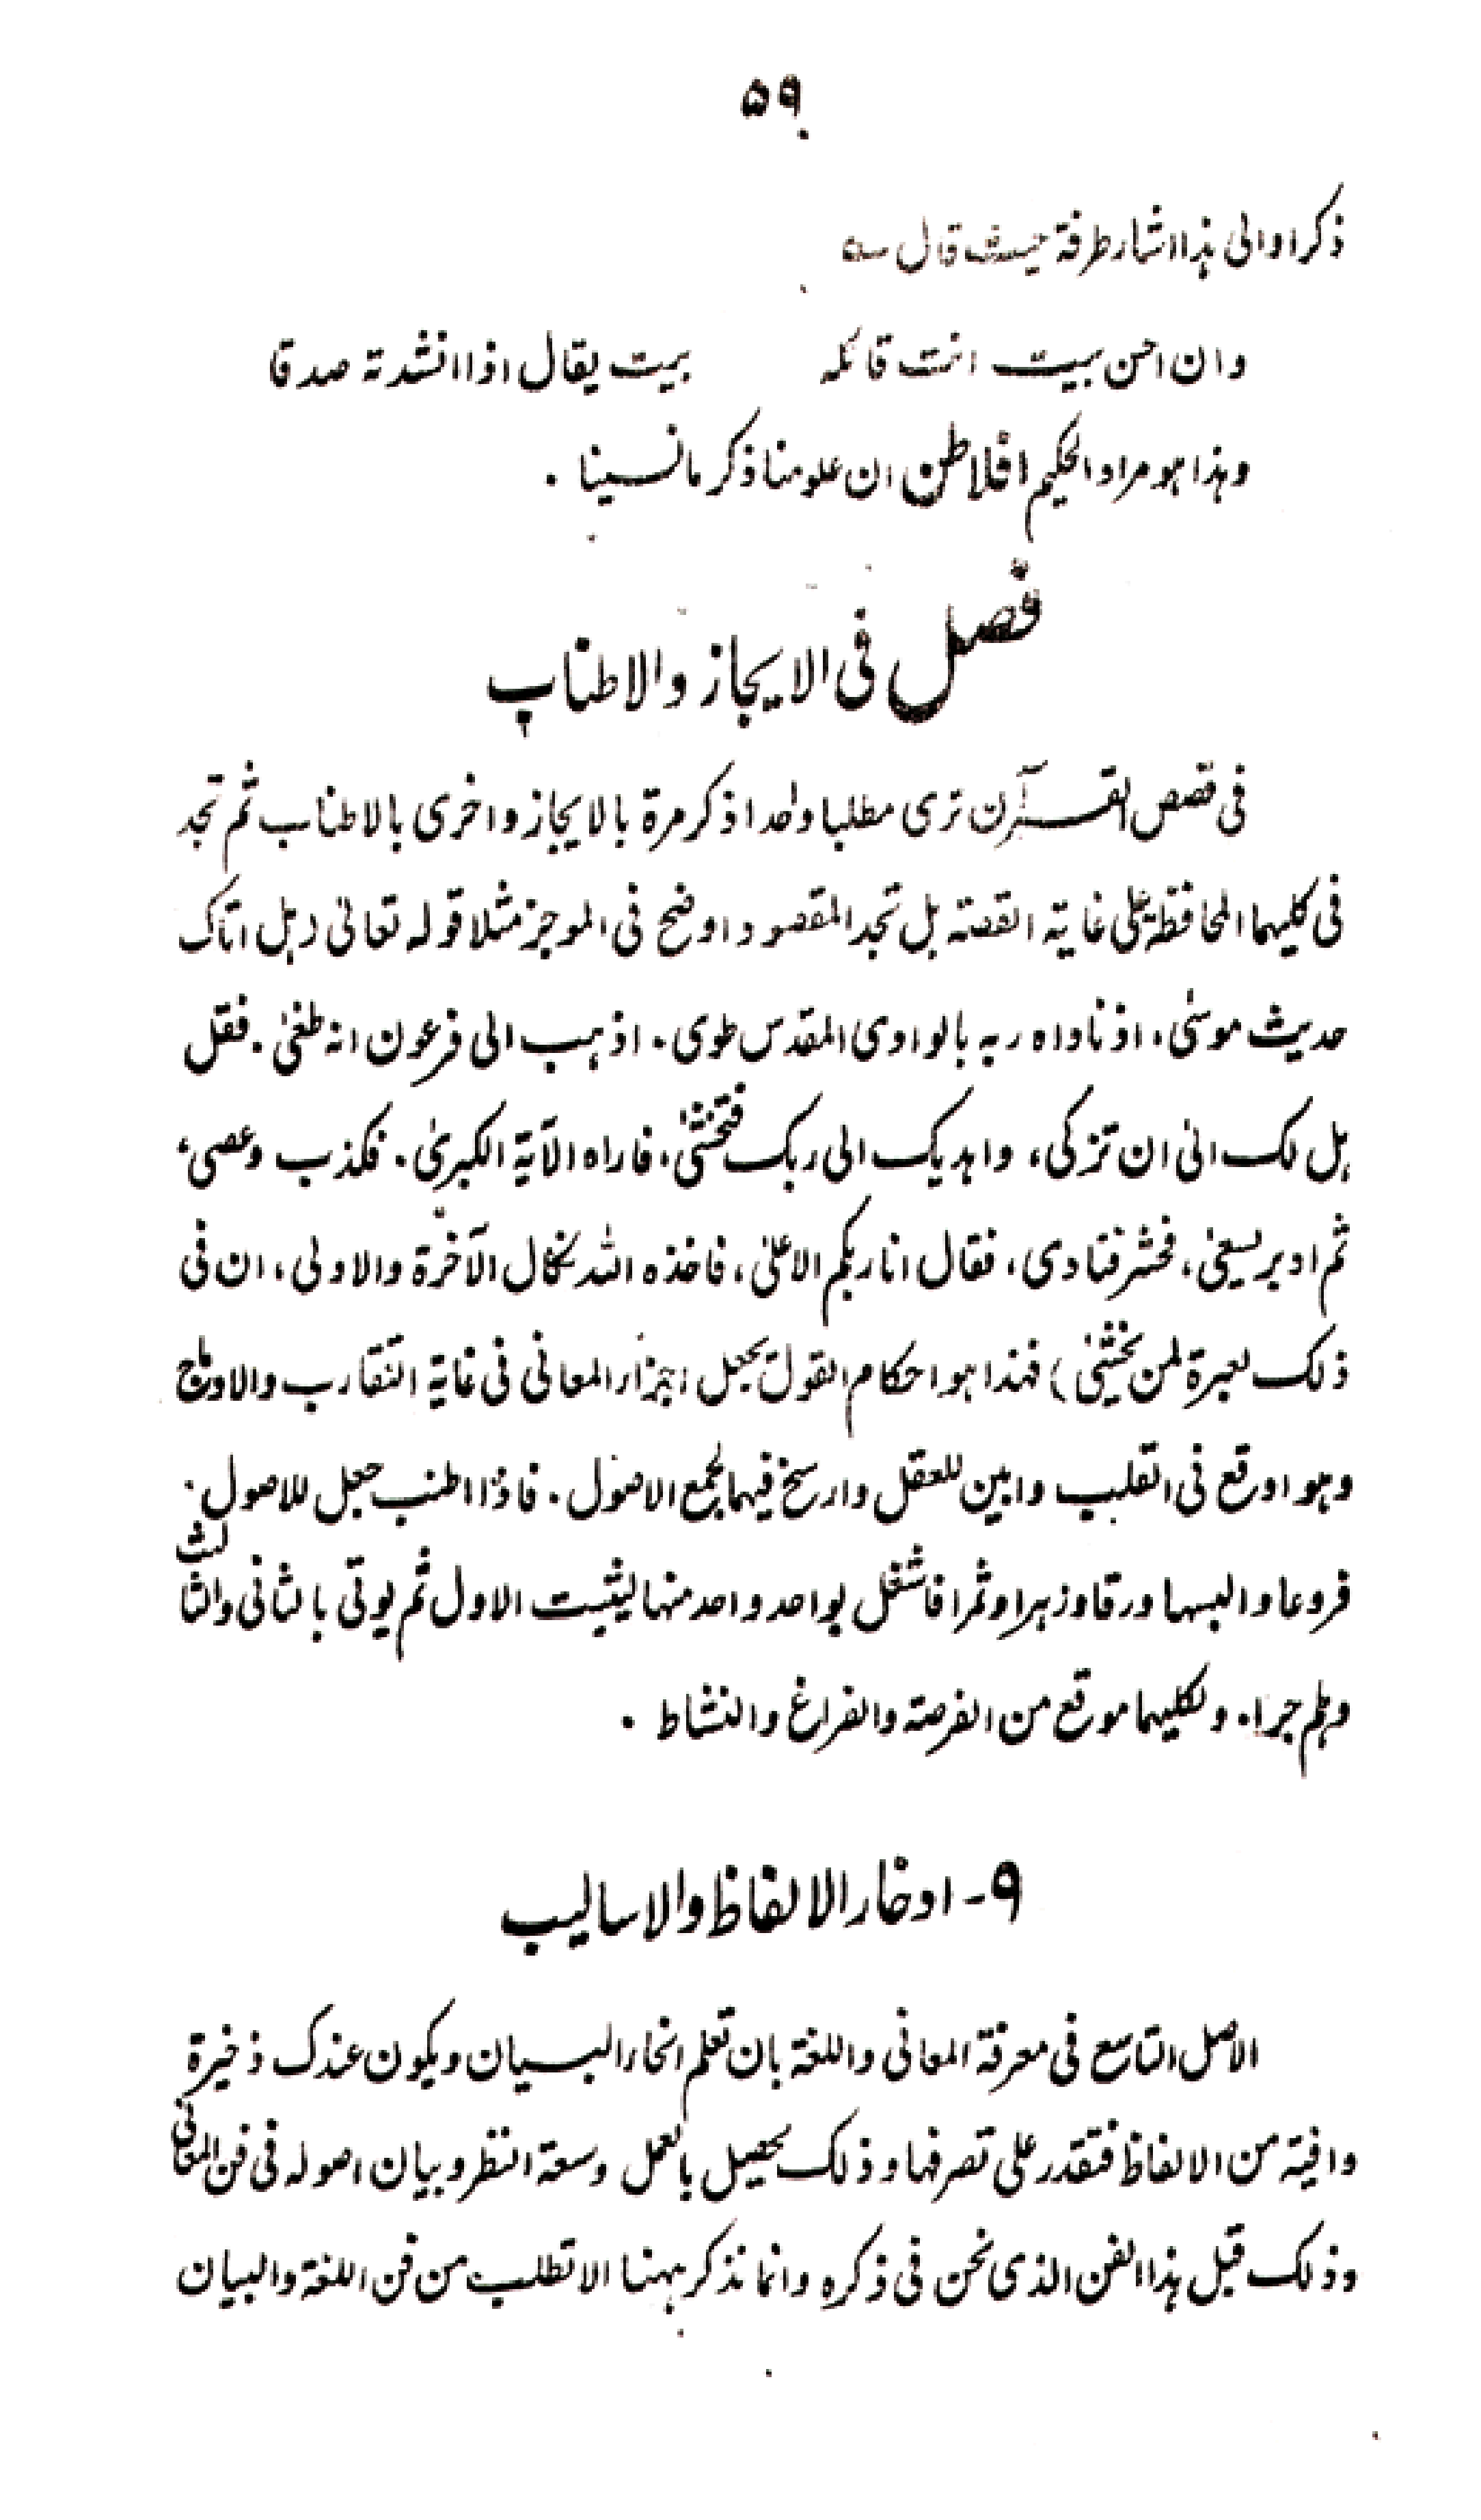 ۵۹
ذکرا والی ہذا اشار طرفۃ حیث قال ؎
وان احسن بیت انت قائلہ بیت یقال اذا انشدتہ صدقا
وہذا ہو مراد الحکیم افلاطن ان علومنا ذکر ما نسینا .
فصل فی الایجاز والاطناب
فی قصص القرآن تری مطلبا واحدا ذکر مرۃ بالایجاز واخری بالاطناب ثم تجد
فی کلیہما المحافظۃ علی غایۃ القصۃ بل تجد المقصود اوضح فی الموجز مثلا قولہ تعالیٰ (ہل اتاک
حدیث موسیٰ، اذ ناداہ ربہ بالوادی المقدس طوی. اذہب الی فرعون انہ طغیٰ. فقل
ہل لک الیٰ ان تزکی، واہدیک الی ربک فتخشیٰ، فاراہ الآیۃ الکبریٰ. فکذب وعصی،
ثم ادبر یسعیٰ، فحشر فنادی، فقال انا ربکم الاعلیٰ، فاخذہ اللہ نکال الآخرۃ والاولی، ان فی
ذلک لعبرۃ لمن یخشیٰ) فہذا ہو احکام القول یجعل اجزاء المعانی فی غایۃ التقارب والادماج
وہو اوقع فی القلب وابین للعقل وارسخ فیہما لجمع الاصول. فاذا اطنب جعل للاصول
فروعا والبسہا ورقا وزہرا وثمرا فاشتغل بواحد واحد منہا لیثبت الاول ثم یوتی بالثانی والثالث
وہلم جرا. ولکلیہما موقع من الفرصۃ والفراغ والنشاط .
۹- ادخار الالفاظ والاسالیب
الاصل التاسع فی معرفۃ المعانی واللغۃ بان تعلم انحاء البیان ویکون عندک ذخیرۃ
وافیۃ من الالفاظ فتقدر علی تصرفہا وذلک یحصل بالعمل وسعۃ النظر وبیان اصولہ فی فن المعانی
وذلک قبل ہذا الفن الذی نحن فی ذکرہ وانما نذکر ہہنا الا تطلب من فن اللغۃ والبیان